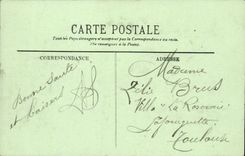 CARTE POSTALE
Tous les Pays étrangers n'acceptent pas la Correspondance au recto.
(Se renseigner à la Poste).
CORRESPONDANCE
ADRESSE
Bonne Santé
et baisers
Madame
Brus
Villa "La Roseraie"
Lafourguette
Toulouse